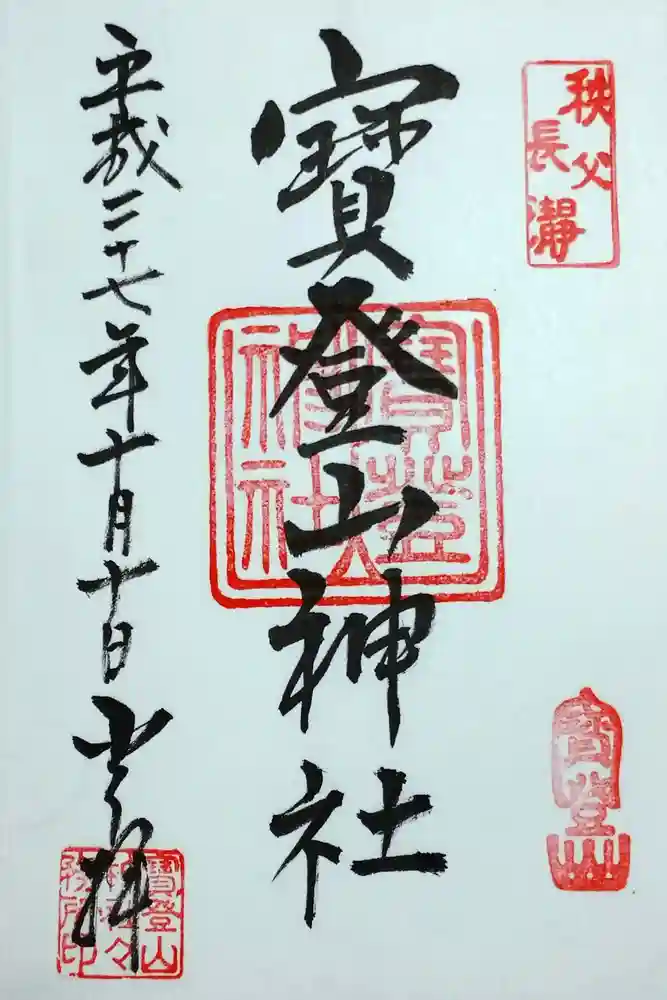 秩父
長瀞
寶登山神社
寶登
神社
寶登山
平成二十七年十月十日
拝
寶登山
神社々
務所印